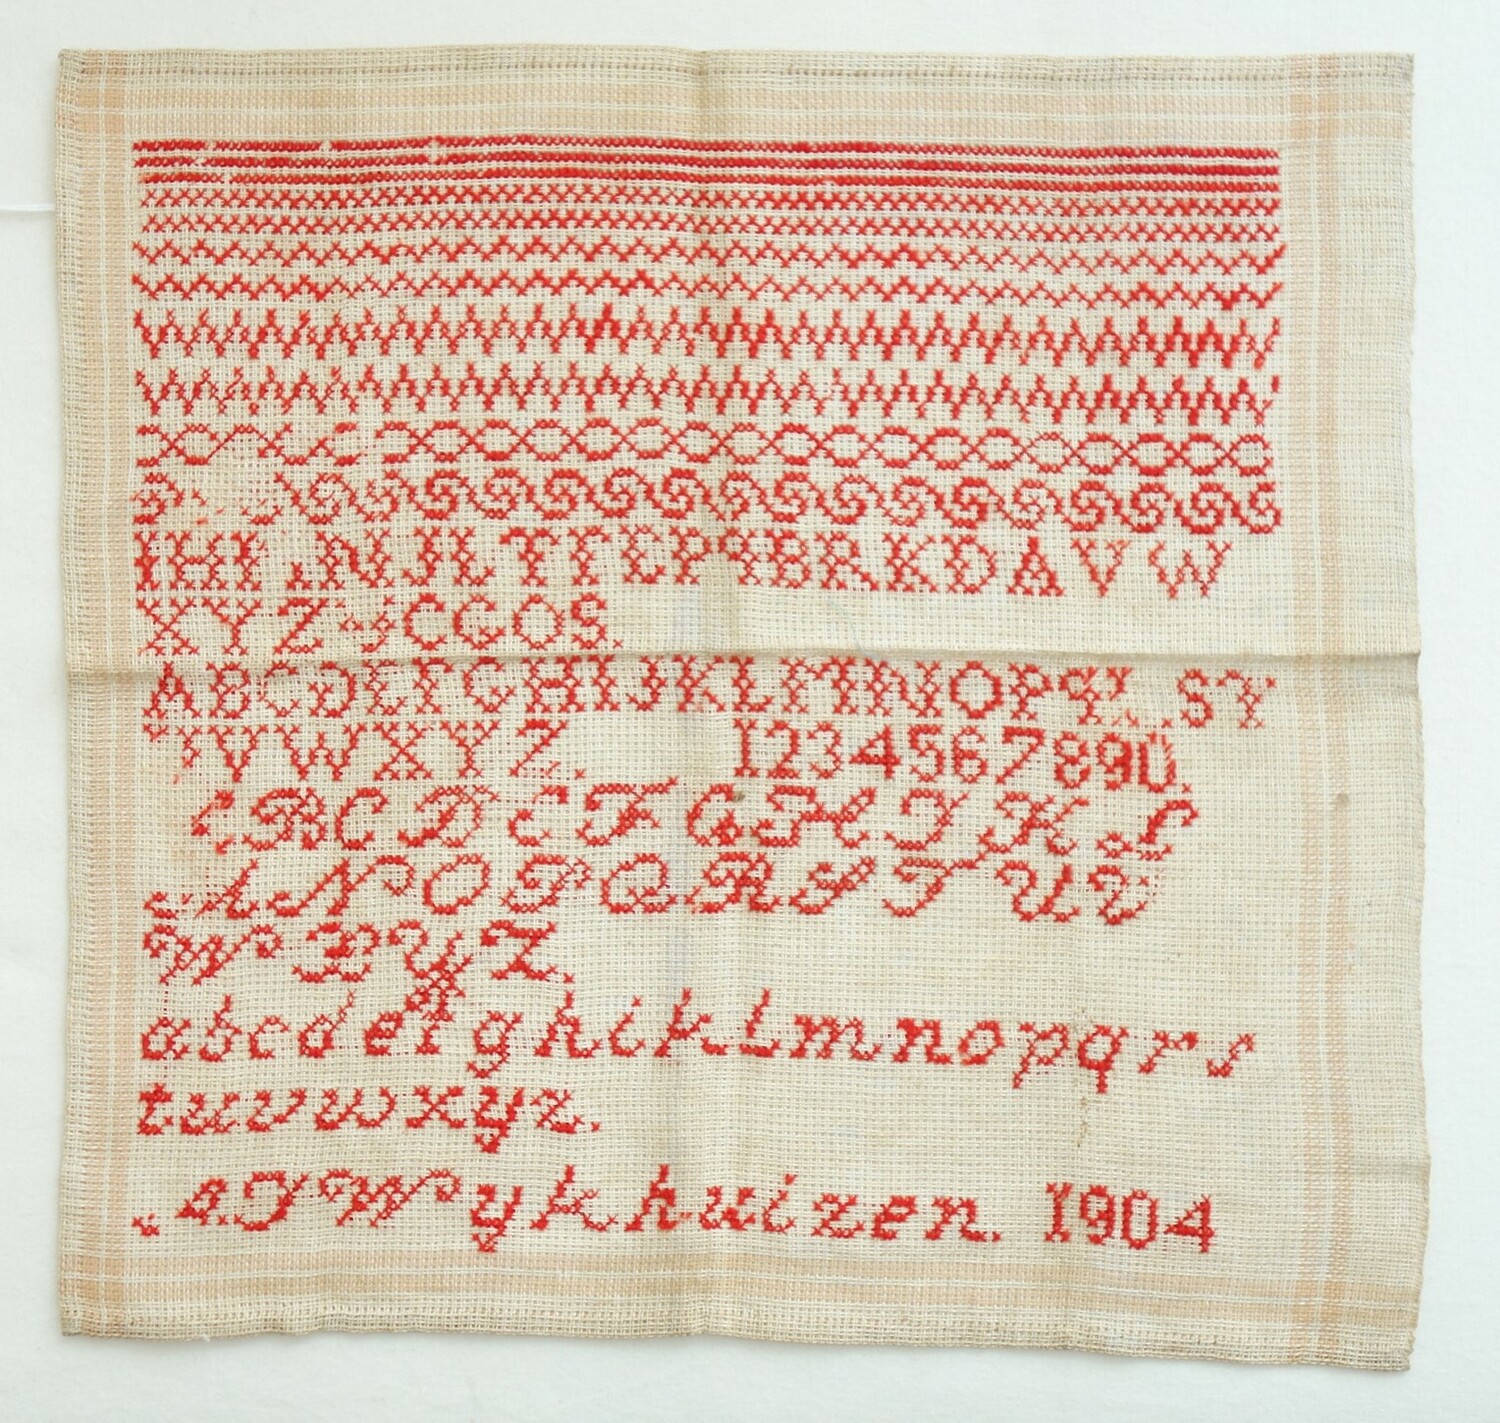 I H I N J L T F E P B R K D A V W
X Y Z C G O S.
A B C D E F G H I J K L M N O P S Y
V W X Y Z. 1 2 3 4 5 6 7 8 9 0.
B C D E F G H I K L
N O P Q R S T U V
W X Y Z.
a b c d e f g h i k l m n o p q r s
t u v w x y z.
A J Wykhuizen. 1904